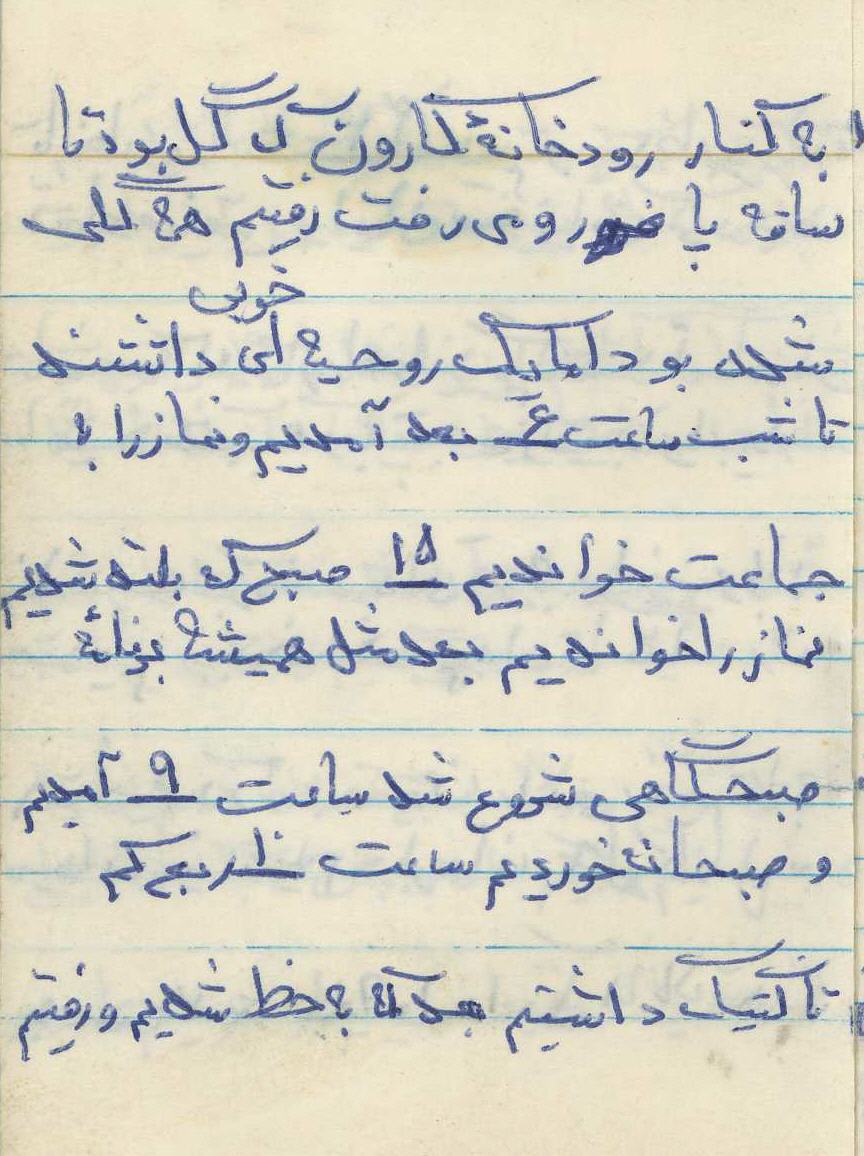 به کنار رودخانهٔ کارون که گل بود تا
ساقه پا فرو می رفت رفتیم همه گلی
خوبی
شده بود اما یک روحیه ای داشتند
تا شب ساعت ۶ بعد آمدیم و نماز را به
جماعت خواندیم ۱۵ صبح که بلند شدیم
نماز را خواندیم بعد مثل همیشه برنامهٔ
صبحگاهی شروع شد ساعت ۹ آمدیم
و صبحانه خوردیم ساعت ۱۰ ربع کم
تاکتیک داشتیم بعد که به خط شدیم و رفتیم